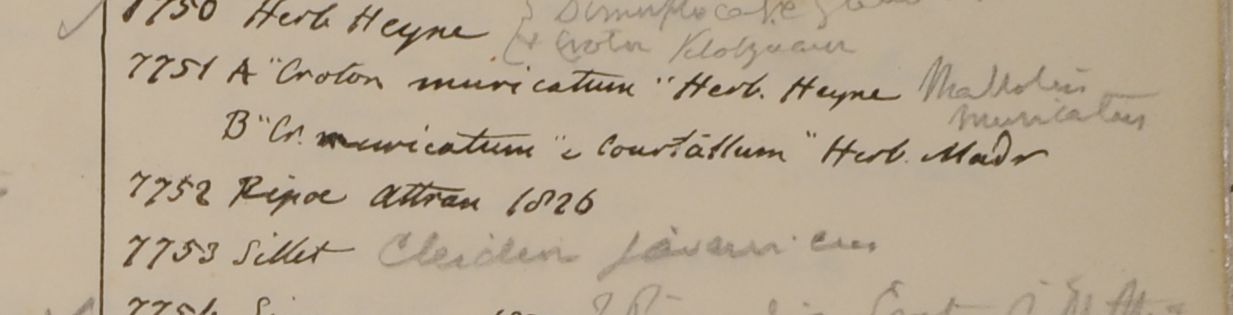 7750 Herb Heyne
& Croton Klotzschii
7751 A "Croton muricatum" Herb. Heyne Mallotus
muricatus
B "Cr. muricatum" e Courtallum" Herb. Madr
7752 Ripae Attran 1826
7753 Sillet Cleidion javanicum